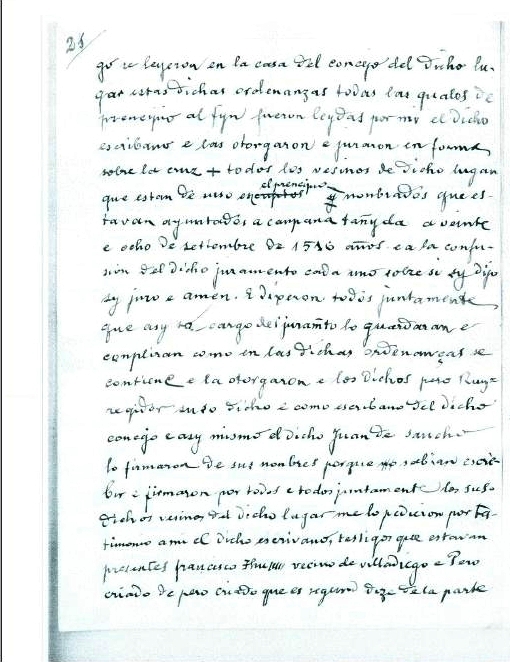 25
go se leyeron en la casa del concejo del dicho lu-
gar estas dichas ordenanzas todas las quales de
prencipio al fyn fueron leydas por mi el dicho
escribano e las otorgaron e juraron en forma
sobre la cruz + todos los vesinos de dicho lugar
el prencipio
que estan de uso escriptos y nonbrados que es-
tavan ayuntados a canpana tañyda a veinte
e ocho de settembre de 1516 años e a la confu-
sión del dicho juramento cada uno sobre si dijo
sy juro e amen. E dixeron todos juntamente
que asy so cargo del jurañto lo guardaran e
conpliran como en las dichas ordenanças se
contiene e la otorgaron e los dichos pero Ruyz
regidor suso dicho e como escribano del dicho
concejo e asy mismo el dicho Juan de sancho
lo firmaron de sus nonbres porque no sabian escre-
bir e firmaron por todos e todos juntamente los suso
dichos vesinos del dicho lugar me lo pedieron por tes-
timonio a mi el dicho escrivano, testigos que estavan
presentes francisco vecino de villadiego e Pero
criado de pero criado que es segund dize de la parte